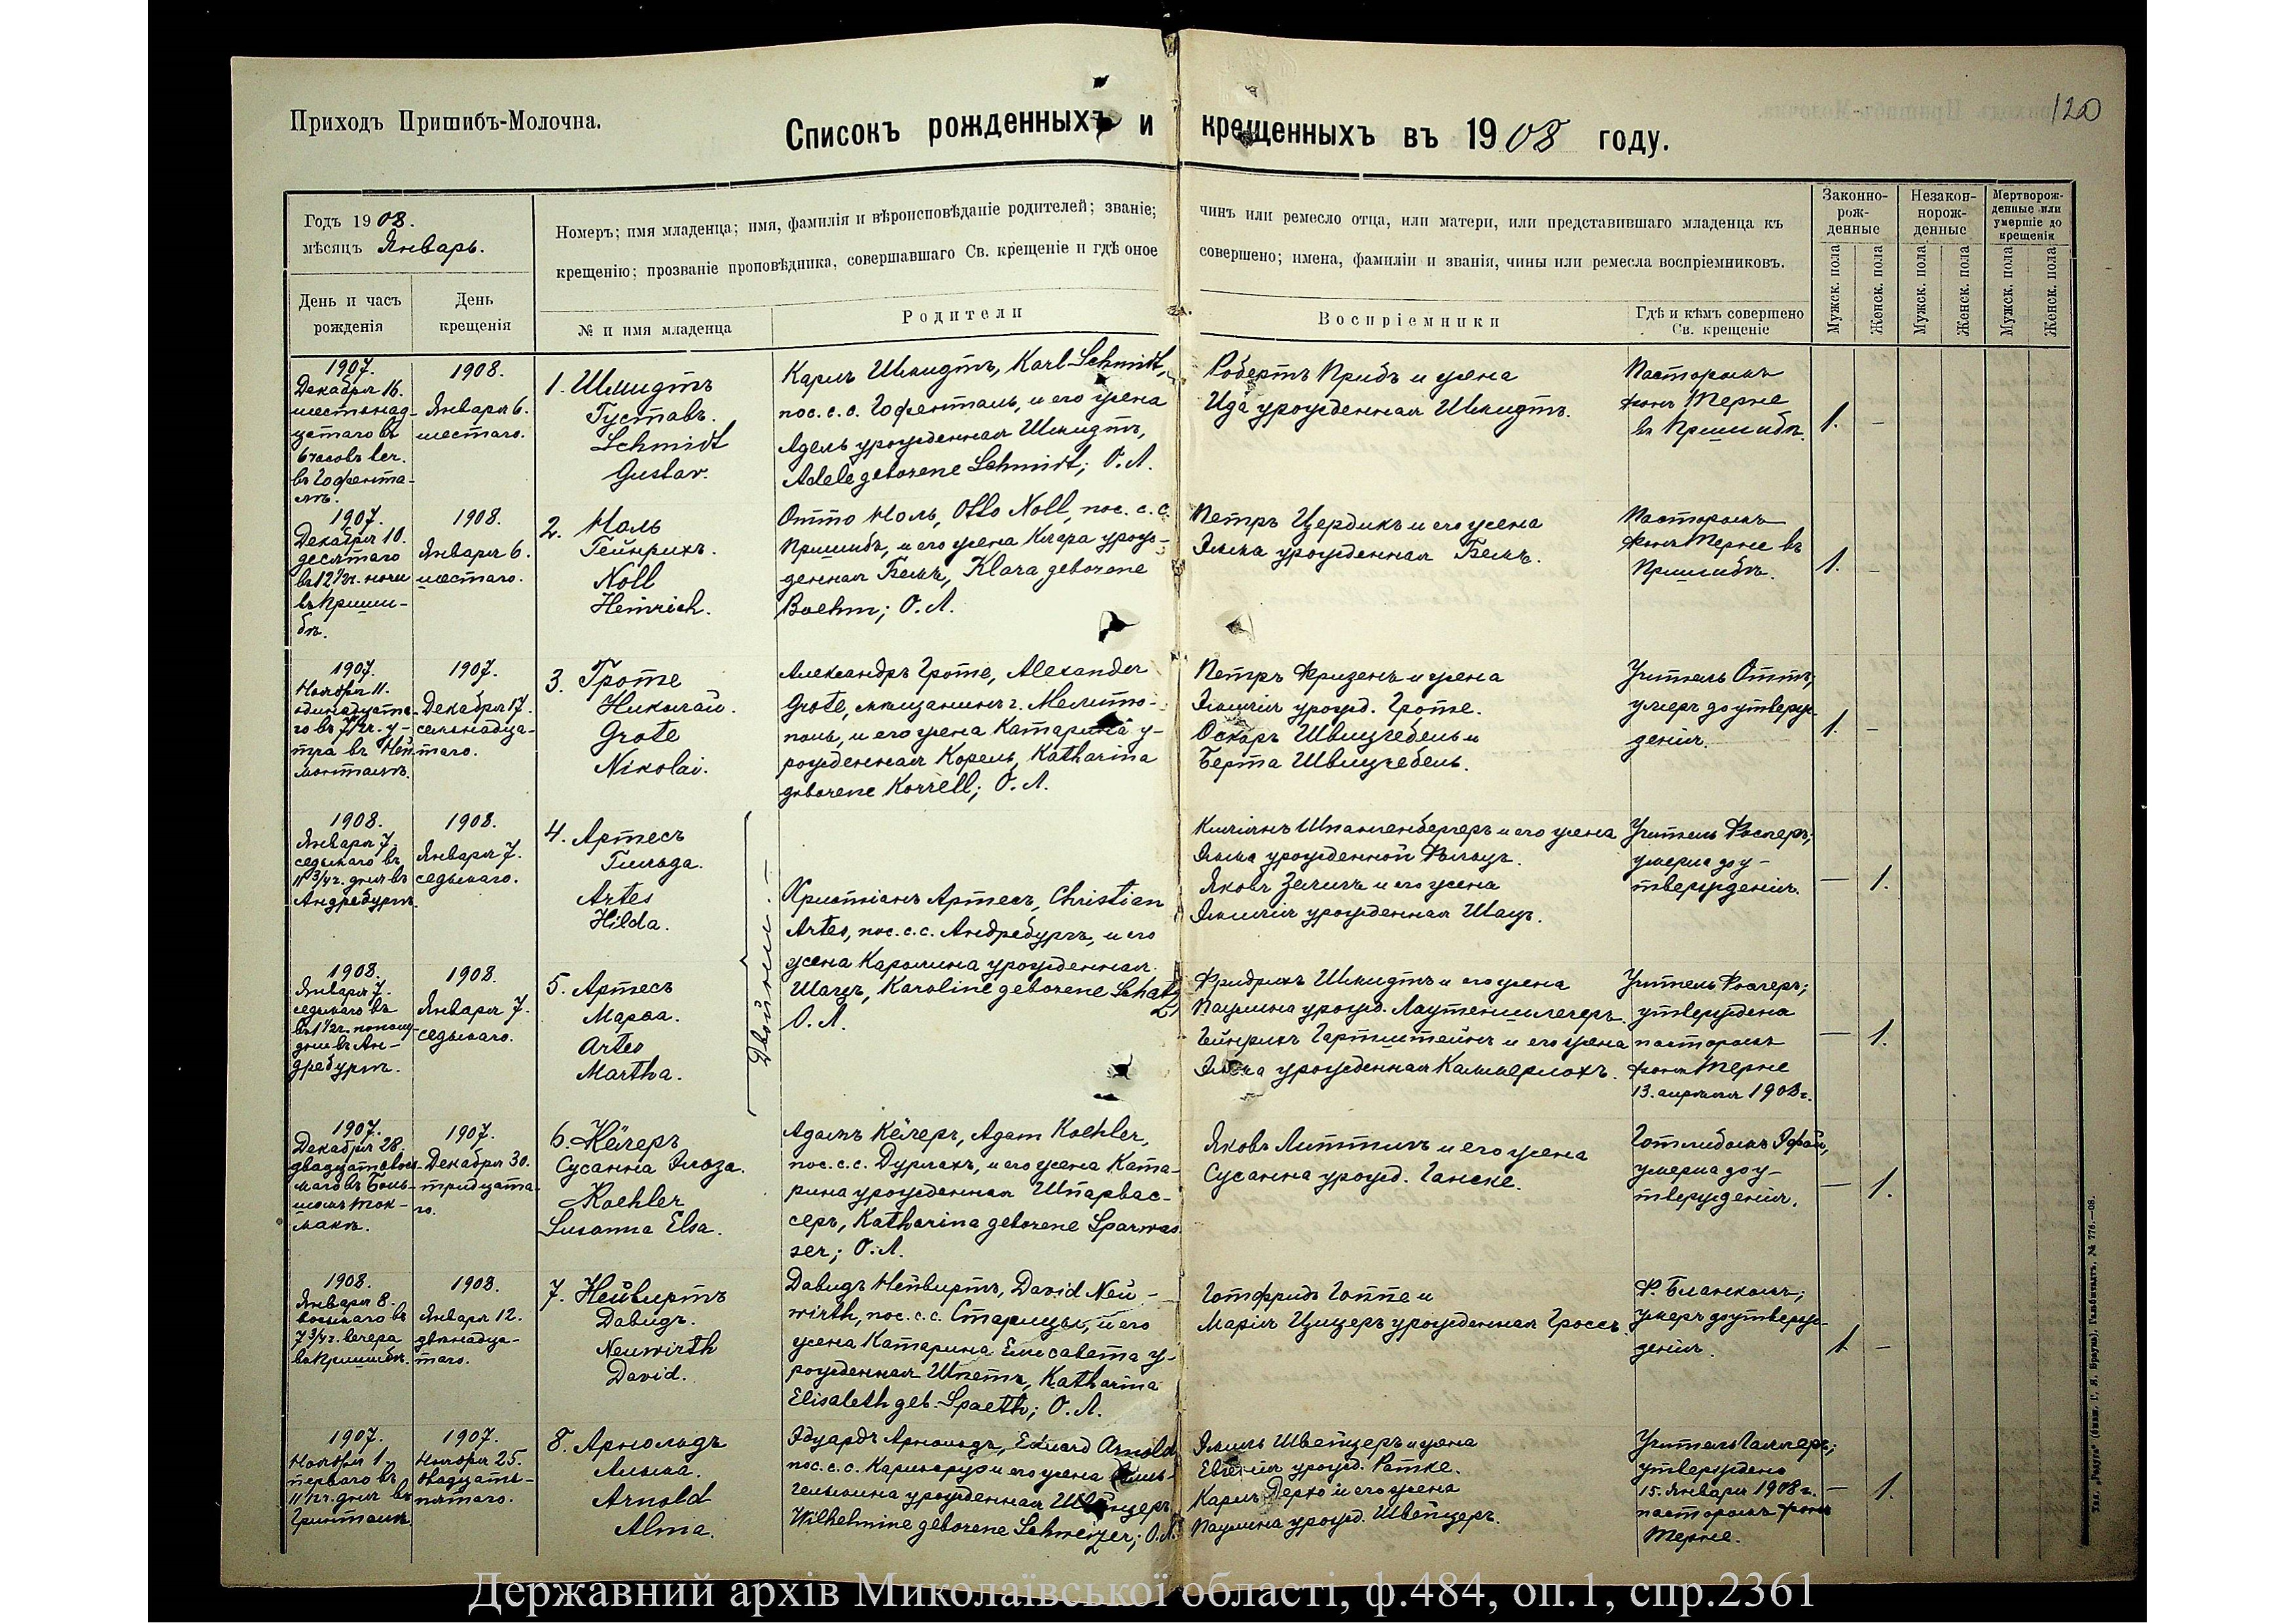 120
Приходъ Пришибъ-Молочна.
Списокъ рожденныхъ и крещенныхъ въ 1908 году.
Годъ 1908.
мѣсяцъ Январь.
День и часъ рожденія
День крещенія
Номеръ; имя младенца; имя, фамилія и вѣроисповѣданіе родителей; званіе; чинъ или ремесло отца, или матери, или представившаго младенца къ
крещенію; прозваніе проповѣдника, совершавшаго Св. крещеніе и гдѣ оное совершено; имена, фамиліи и званія, чины или ремесла воспріемниковъ.
№ и имя младенца
Родители
Воспріемники
Гдѣ и кѣмъ совершено Св. крещеніе
Законно-рож-денные
Незакон-норож-денные
Мертворож-денные или умершіе до крещенія
Мужск. пола
Женск. пола
Мужск. пола
Женск. пола
Мужск. пола
Женск. пола
1907.
Декабря 16.
шестнад-
цатаго въ
6 часовъ веч.
въ Гофента-
лѣ.
1908.
Января 6.
шестаго.
1. Шмидтъ
Густавъ.
Schmidt
Gustav.
Карлъ Шмидтъ, Karl Schmidt,
пос. с. с. Гофенталь, и его жена
Адель урожденная Шмидтъ,
Adele geborene Schmidt; О. Л.
Робертъ Прибъ и жена
Ида урожденная Шмидтъ.
Пасторомъ
фонъ Терне
въ Пришибѣ.
1. -
1907.
Декабря 10.
десятаго
въ 12½ч. ночи
въ Приши-
бѣ.
1908.
Января 6.
шестаго.
2. Ноль
Гейнрихъ.
Noll
Heinrich.
Отто Ноль, Otto Noll, пос. с. с.
Пришибъ, и его жена Клара урож-
денная Бемъ, Klara geborene
Boehm; О. Л.
Петръ Цердикъ и его жена
Эмма урожденная Бемъ.
Пасторомъ
фонъ Терне въ
Пришибѣ.
1. -
1907.
Ноября 11.
одинадцата-
го въ 7½ч. у-
тра въ Ней-
монталѣ.
1907.
Декабря 17.
семнадца-
таго.
3. Гроте
Николай.
Grote
Nikolai.
Александръ Гроте, Alexander
Grote, мѣщанинъ г. Мелито-
поль, и его жена Катарина у-
рожденная Корель, Katharina
geborene Korrell; О. Л.
Петръ Фризенъ и жена
Эмилія урожд. Гроте.
Оскаръ Швицгебель и
Берта Швицгебель.
Учитель Оттъ,
умеръ до утверж-
денія.
1. -
1908.
Января 7.
седьмаго въ
11¾ч. дня въ
Андребургѣ.
1908.
Января 7.
седьмаго.
4. Артесъ
Гильда.
Artes
Hilda.
Двойни
Христіанъ Артесъ, Christian
Artes, пос. с. с. Андребургъ, и его
жена Каролина урожденная
Шатцъ, Karoline geborene Schatz
О. Л.
Киліянъ Шпангенбергеръ и его жена
Эмма урожденной Фольцъ.
Яковъ Зелигъ и его жена
Эмилія урожденная Шацъ.
Учитель Фослеръ;
умерла до у-
твержденія.
— 1.
1908.
Января 7.
седьмаго въ
въ 1½ч. пополу-
дни въ Ан-
дребургѣ.
1908.
Января 7.
седьмаго.
5. Артесъ
Марѳа.
Artes
Martha.
Фридрихъ Шмидтъ и его жена
Паулина урожд. Лаутеншлегеръ.
Гейнрихъ Гартштейнъ и его жена
Эмма урожденная Каммерлохъ.
Учитель Фослеръ;
утверждена
пасторомъ
фонъ Терне
13. апрѣля 1908 г.
— 1.
1907.
Декабря 28.
двадцатовось-
маго въ Боль-
шомъ Ток-
макѣ.
1907.
Декабря 30.
тридцата-
го.
6. Кёлеръ
Сусанна Эльза.
Koehler
Susanna Elsa.
Адамъ Кёлеръ, Adam Koehler,
пос. с. с. Дурлахъ, и его жена Ката-
рина урожденная Шпарвас-
серъ, Katharina geborene Sparwas-
ser; О. Л.
Яковъ Литтихъ и его жена
Сусанна урожд. Ганске.
Готлибомъ
умерла до у-
твержденія.
— 1.
1908.
Января 8.
восьмаго въ
7¾ч. вечера
въ Пришибѣ.
1908.
Января 12.
двѣнадца-
таго.
7. Нейвиртъ
Давидъ.
Neuwirth
David.
Давидъ Нейвиртъ, David Neu-
wirth, пос. с. с. Старицы, и его
жена Катарина Елисавета у-
рожденная Шпетъ, Katharina
Elisabeth geb. Spaeth; О. Л.
Готфридъ Гоппе и
Марія Цицеръ урожденная Гроссъ.
Ф. Бланкомъ;
умеръ до утверж-
денія.
1 -
1907.
Ноября 1.
перваго въ
11½ч. дня въ
Гринталѣ.
1907.
Ноября 25.
двадцать-
пятаго.
8. Арнольдъ
Альма.
Arnold
Alma.
Эдуардъ Арнольдъ, Eduard Arnold
пос. с. с. Карльсру и его жена Виль-
гельмина урожденная Швейцеръ,
Wilhelmine geborene Schweizer; О. Л.
Эмиль Швейцеръ и жена
Евгенія урожд. Ратке.
Карлъ Дерхо и его жена
Паулина урожд. Швейцеръ.
Учитель Галлеръ;
утверждено
15. Января 1908 г.
пасторомъ фонъ
Терне.
— 1.
Державний архів Миколаївської області, ф.484, оп.1, спр.2361